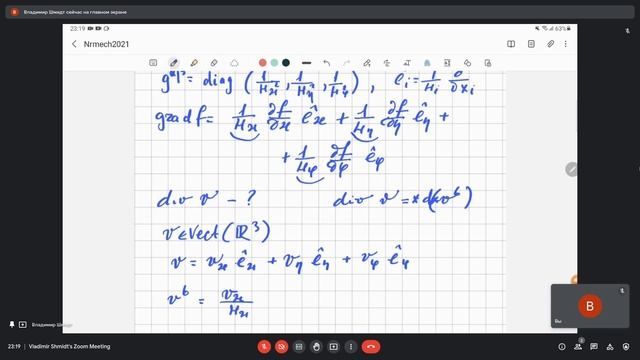 Владимир Шмидт сейчас на главном экране
23:19
63%
Nrmech2021
g^{αβ} = diag (1/H_ϰ^2, 1/H_η^2, 1/H_φ^2), e_i = 1/H_i ∂/∂x_i
grad f = 1/H_ϰ ∂f/∂ϰ ê_ϰ + 1/H_η ∂f/∂η ê_η +
+ 1/H_φ ∂f/∂φ ê_φ
div v - ? div v = *d(*v^b)
v ∈ Vect(ℝ^3)
v = v_ϰ ê_ϰ + v_η ê_η + v_φ ê_φ
v^b = v_ϰ/H_ϰ
В
Вы
Владимир Шмидт
23:19 | Vladimir Shmidt's Zoom Meeting
2